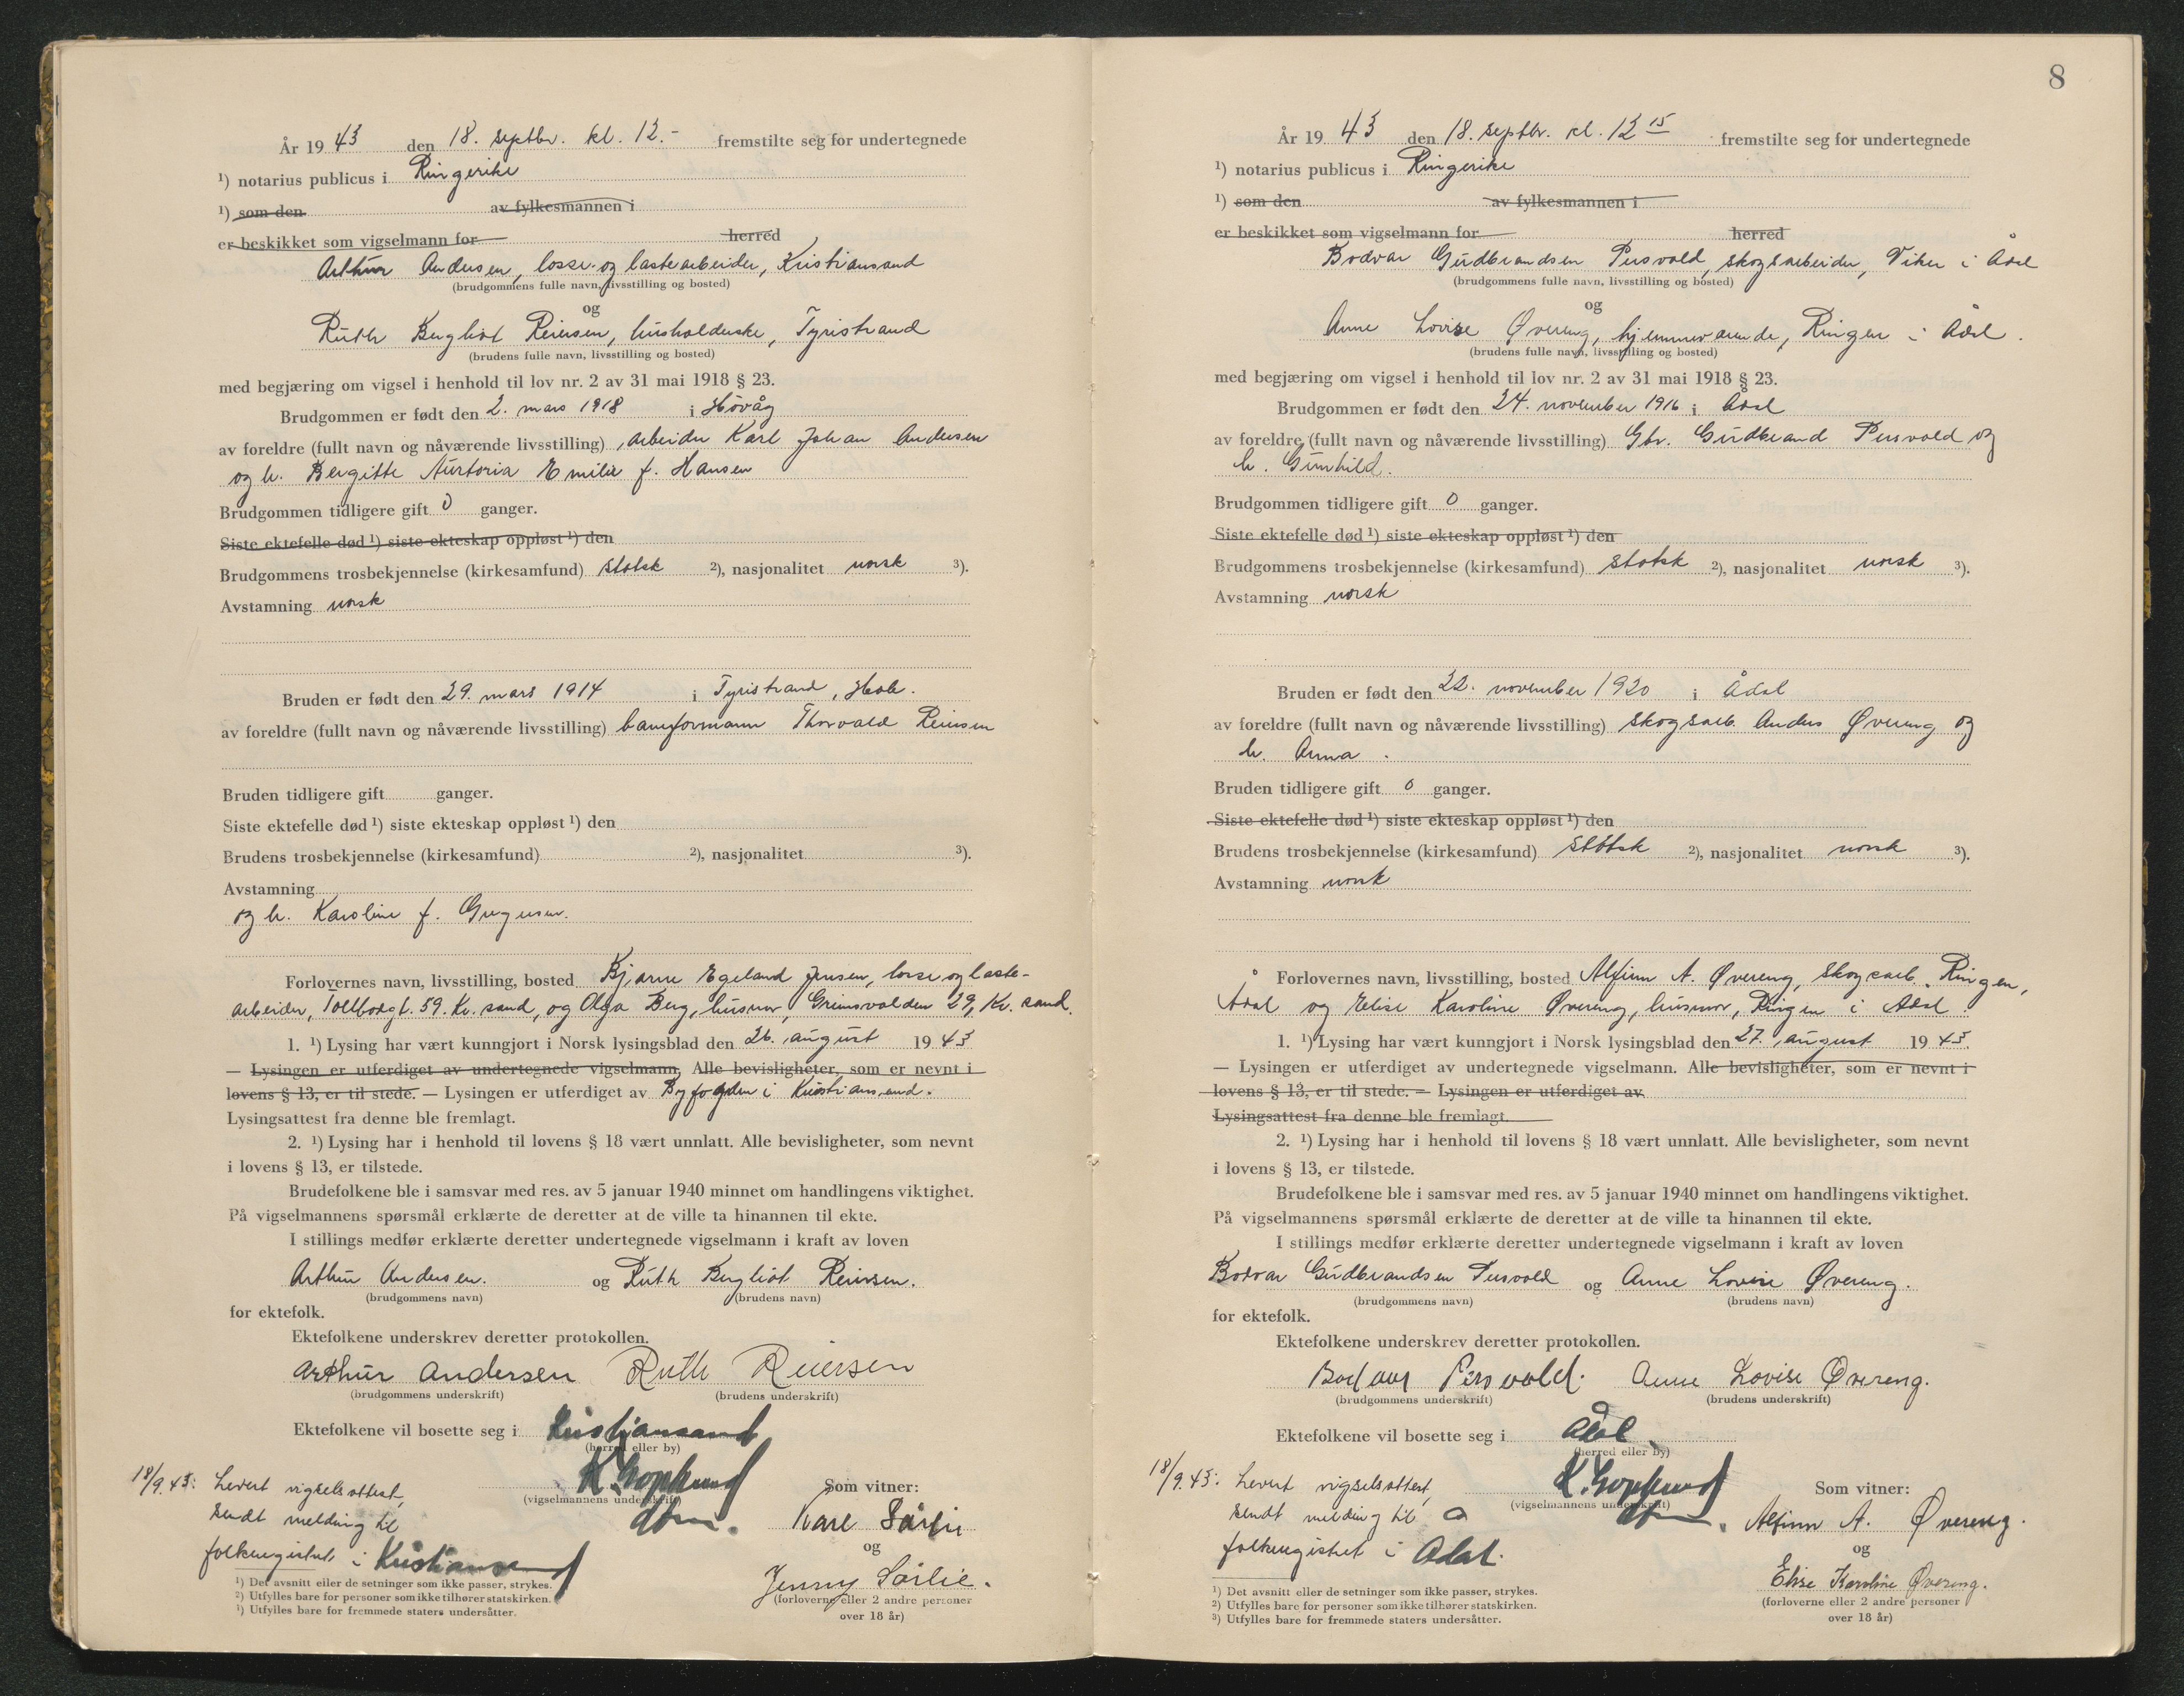 År 19 43 den 18. septbr. kl. 12.- fremstilte seg for undertegnede
¹) notarius publicus i Ringerike
¹) som den av fylkesmannen i
er beskikket som vigselmann for herred
Arthur Andersen, losse- og lastearbeider, Kristiansand
(brudgommens fulle navn, livsstilling og bosted)
og
Ruth Bergliot Reiersen, husholderske, Tyristrand
(brudens fulle navn, livsstilling og bosted)
med begjæring om vigsel i henhold til lov nr. 2 av 31 mai 1918 § 23.
Brudgommen er født den 2. mars 1918 i Høvåg
av foreldre (fullt navn og nåværende livsstilling) arbeider Karl Johan Andersen
og h. Bergitte Emilie f. Hansen
Brudgommen tidligere gift 0 ganger.
Siste ektefelle død ¹) siste ekteskap oppløst ¹) den
Brudgommens trosbekjennelse (kirkesamfund) statsk ²), nasjonalitet norsk ³).
Avstamning norsk
Bruden er født den 29. mars 1914 i Tyristrand, Hole.
av foreldre (fullt navn og nåværende livsstilling) baneformann Thorvald Reiersen
Bruden tidligere gift ganger.
Siste ektefelle død ¹) siste ekteskap oppløst ¹) den
Brudens trosbekjennelse (kirkesamfund) ²), nasjonalitet ³).
Avstamning
og h. Karoline f. Gregersen.
Forlovernes navn, livsstilling, bosted Bjarne Egeland Jensen, losse og laste-
arbeider, Tollbodgt. 59. Kr. sand, og Olga Berg, husmor, Grimsvolden 29, Kr. sand.
1. ¹) Lysing har vært kunngjort i Norsk lysingsblad den 26. august 19 43
— Lysingen er utferdiget av undertegnede vigselmann, Alle bevisligheter, som er nevnt i
lovens § 13, er til stede. — Lysingen er utferdiget av Byfogden i Kristiansand.
Lysingsattest fra denne ble fremlagt.
2. ¹) Lysing har i henhold til lovens § 18 vært unnlatt. Alle bevisligheter, som nevnt
i lovens § 13, er tilstede.
Brudefolkene ble i samsvar med res. av 5 januar 1940 minnet om handlingens viktighet.
På vigselmannens spørsmål erklærte de deretter at de ville ta hinannen til ekte.
I stillings medfør erklærte deretter undertegnede vigselmann i kraft av loven
Arthur Andersen. og Ruth Bergliot Reiersen.
(brudgommens navn) (brudens navn)
for ektefolk.
Ektefolkene underskrev deretter protokollen.
Arthur Andersen Ruth Reiersen
(brudgommens underskrift) (brudens underskrift)
Ektefolkene vil bosette seg i Kristiansand
(herred eller by)
18/9.43: Levert vigselsattest,
sendt melding til
folkeregistret i Kristiansand
(vigselmannens underskrift)
Som vitner:
Kåre Sørlie
og
Jenny Sørlie.
(forloverne eller 2 andre personer
over 18 år)
¹) Det avsnitt eller de setninger som ikke passer, strykes.
²) Utfylles bare for personer som ikke tilhører statskirken.
³) Utfylles bare for fremmede staters undersåtter.
8
År 19 43 den 18. septbr. kl. 12 15 fremstilte seg for undertegnede
¹) notarius publicus i Ringerike
¹) som den av fylkesmannen i
er beskikket som vigselmann for herred
Bodvar Gudbrandsen Persvold, skogsarbeider, Viker i Ådal
(brudgommens fulle navn, livsstilling og bosted)
og
Anne Lovise Øvereng, hjemmeværende, Ringen i Ådal.
(brudens fulle navn, livsstilling og bosted)
med begjæring om vigsel i henhold til lov nr. 2 av 31 mai 1918 § 23.
Brudgommen er født den 24. november 1916 i Ådal
av foreldre (fullt navn og nåværende livsstilling) Gbr. Gudbrand Persvold og
h. Gunhild.
Brudgommen tidligere gift 0 ganger.
Siste ektefelle død ¹) siste ekteskap oppløst ¹) den
Brudgommens trosbekjennelse (kirkesamfund) statsk ²), nasjonalitet norsk ³).
Avstamning norsk
Bruden er født den 22. november 1920 i Ådal
av foreldre (fullt navn og nåværende livsstilling) skogsarb. Anders Øvereng og
h. Anna.
Bruden tidligere gift 0 ganger.
Siste ektefelle død ¹) siste ekteskap oppløst ¹) den
Brudens trosbekjennelse (kirkesamfund) statsk ²), nasjonalitet norsk ³).
Avstamning norsk
Forlovernes navn, livsstilling, bosted Alfinn A. Øvereng, skogsarb. Ringen,
Ådal og Elise Karoline Øvereng, husmor, Ringen i Ådal.
1. ¹) Lysing har vært kunngjort i Norsk lysingsblad den 27. august 19 43.
— Lysingen er utferdiget av undertegnede vigselmann. Alle bevisligheter, som er nevnt i
lovens § 13, er til stede. — Lysingen er utferdiget av
Lysingsattest fra denne ble fremlagt.
2. ¹) Lysing har i henhold til lovens § 18 vært unnlatt. Alle bevisligheter, som nevnt
i lovens § 13, er tilstede.
Brudefolkene ble i samsvar med res. av 5 januar 1940 minnet om handlingens viktighet.
På vigselmannens spørsmål erklærte de deretter at de ville ta hinannen til ekte.
I stillings medfør erklærte deretter undertegnede vigselmann i kraft av loven
Bodvar Gudbrandsen Persvold og Anne Lovise Øvereng.
(brudgommens navn) (brudens navn)
for ektefolk.
Ektefolkene underskrev deretter protokollen.
Bodvar Persvold. Anne Lovise Øvereng.
(brudgommens underskrift) (brudens underskrift)
Ektefolkene vil bosette seg i Ådal
(herred eller by)
18/9.43: Levert vigselsattest,
sendt melding til
folkeregistret i Ådal.
(vigselmannens underskrift)
Som vitner:
Alfinn A. Øvereng.
og
Elise Karoline Øvereng.
(forloverne eller 2 andre personer
over 18 år)
¹) Det avsnitt eller de setninger som ikke passer, strykes.
²) Utfylles bare for personer som ikke tilhører statskirken.
³) Utfylles bare for fremmede staters undersåtter.